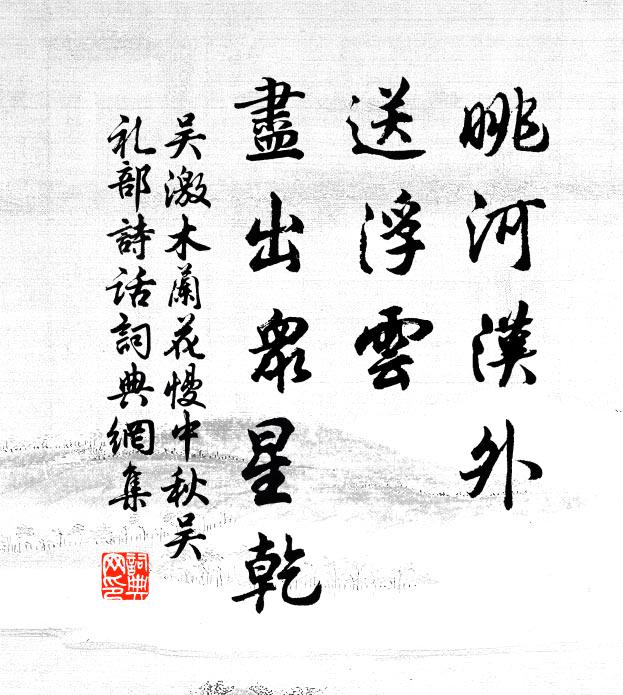 眺河漢外
送浮雲
盡出衆星乾
吴激木蘭花慢中秋吴
礼部詩话詞典網集
詞典網印